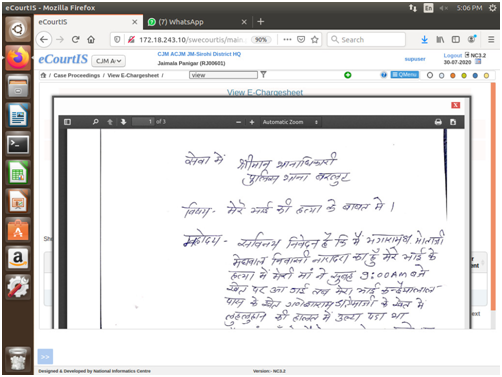 eCourtIS - Mozilla Firefox
En
5:06 PM
eCourtIS
(7) WhatsApp
172.18.243.10/swecourtis/main
90%
Search
eCourtIS
CJM A
CJM ACJM JM-Sirohi District HQ
Jaimala Panigar (RJ00601)
supuser
Logout
NC3.2
30-07-2020
/ Case Proceedings / View E-Chargesheet /
view
QMenu
View E-Chargesheet
X
1 of 3
Automatic Zoom
सेवा में श्रीमान् थानाधिकारी
पुलिस थाना बरलूट
विषय- मेरे भाई की हत्या के बाबत में।
महोदय - सविनय निवेदन है कि मैं
मेघवाल निवासी का हुँ मेरे भाई के
हत्या में मेरी माँ ने सुबह 9:00 AM
खेत पर आ गई तब मेरा भाई कन्हैयालाल
पास के खेत के खेत में
लहुलुहान की हालत में पडा था
Sh
ument
>>
Designed & Developed by National Informatics Centre
Version:- NC3.2